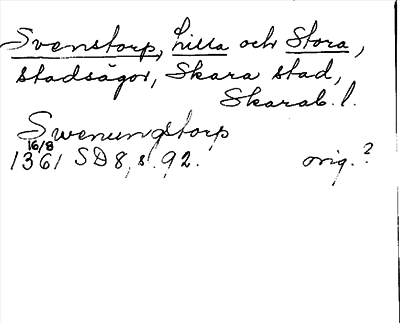 Svenstorp, Lilla och Stora,
stadsägor, Skara stad,
Skarab. l.
Swenungstorp
16/8
1361 SD 8, s. 92. orig.?